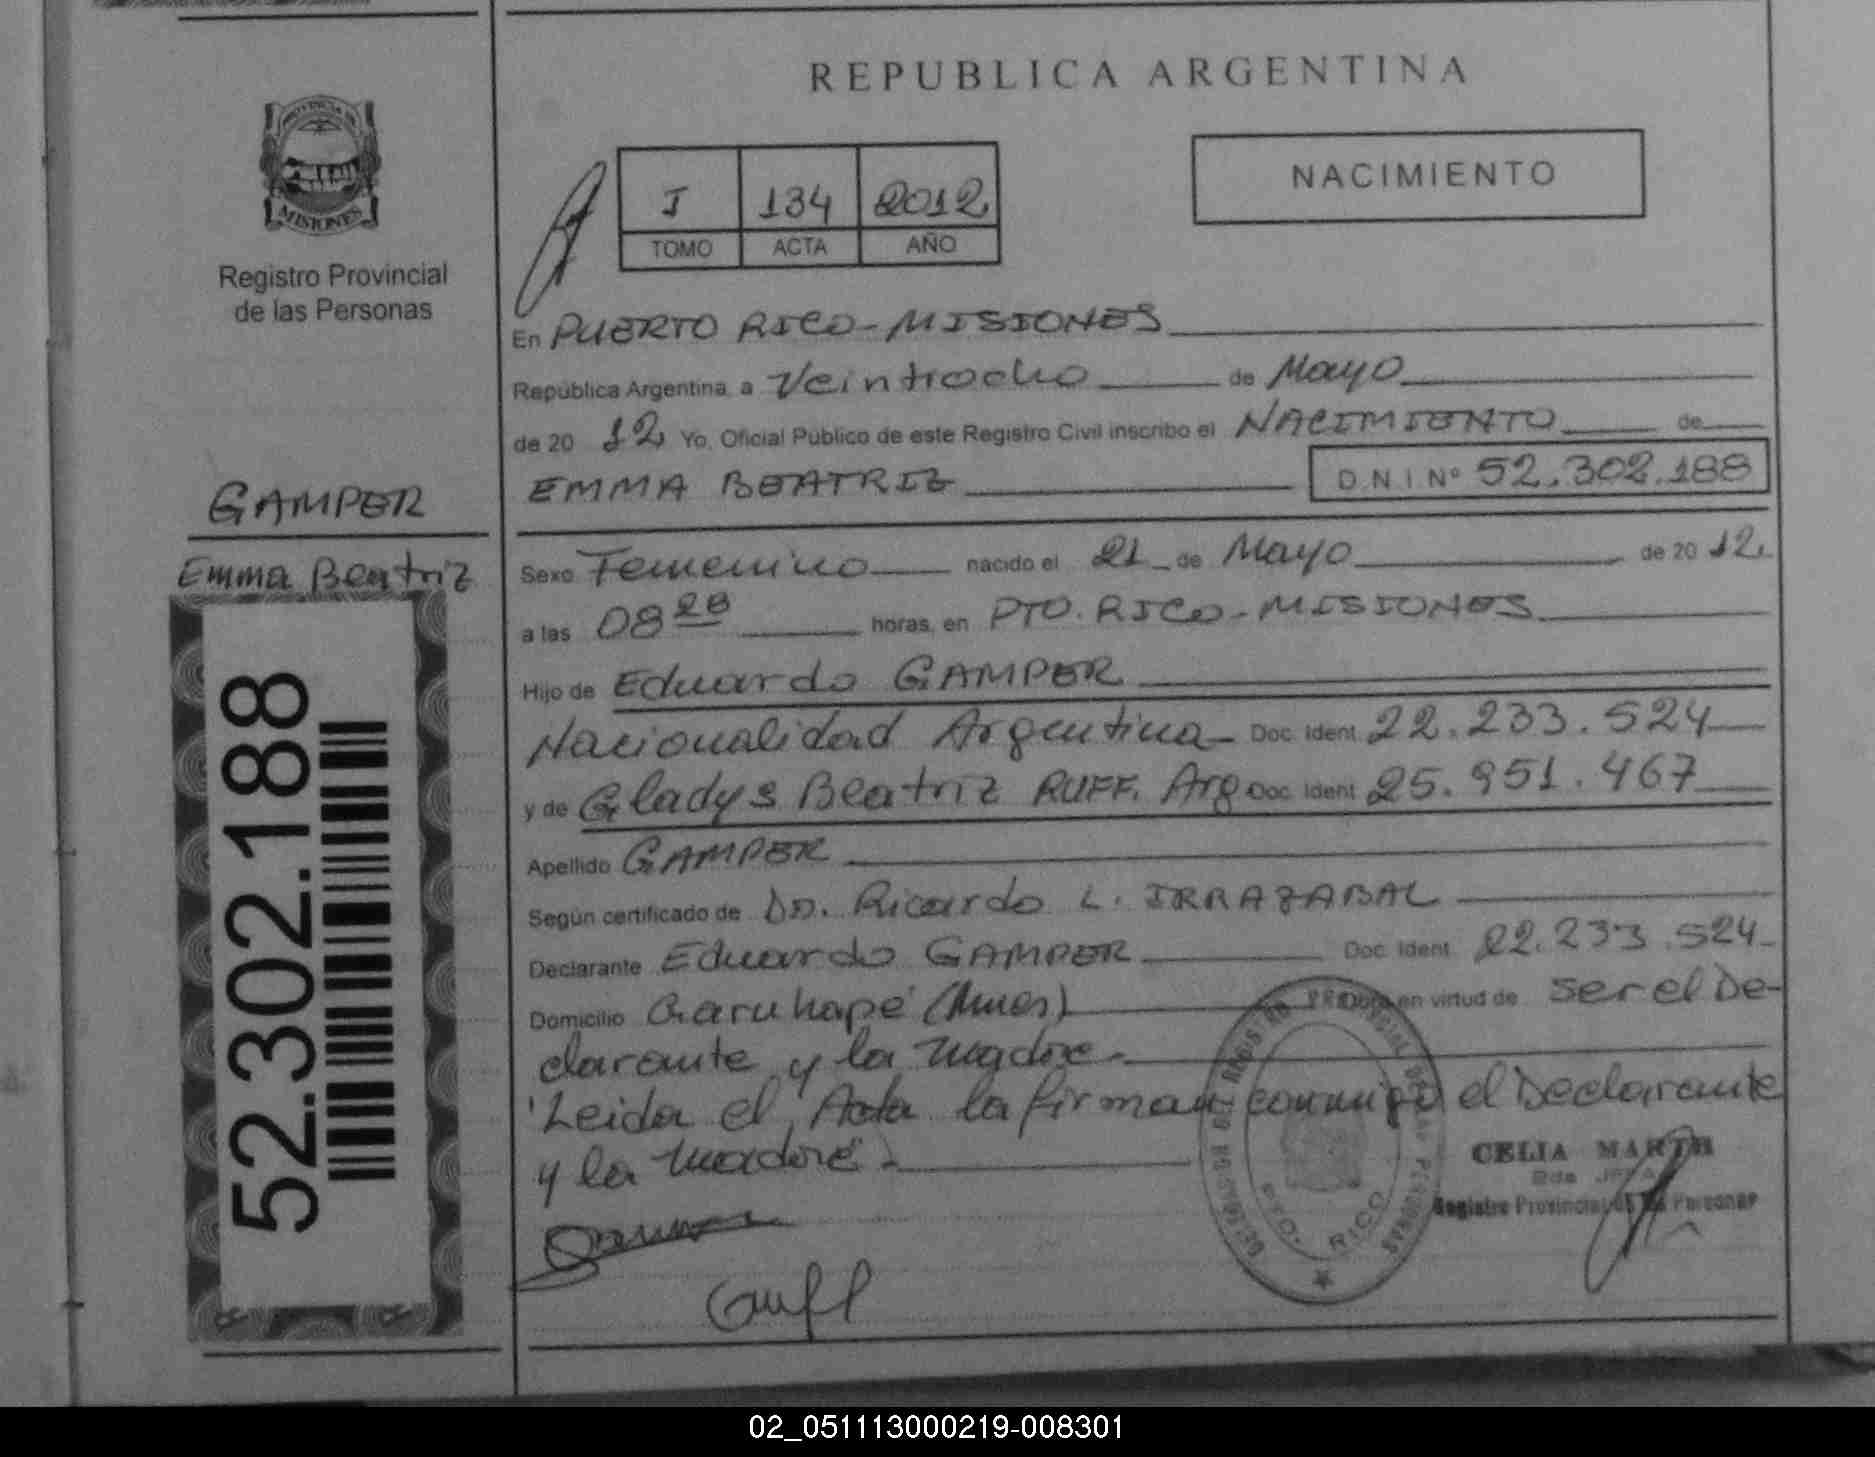 REPUBLICA ARGENTINA
PROVINCIA DE
MISIONES
Registro Provincial
de las Personas
I 134 2012
TOMO ACTA AÑO
NACIMIENTO
En PUERTO RICO - MISIONES
República Argentina, a Veintiocho de Mayo
de 20 12 Yo, Oficial Público de este Registro Civil inscribo el NACIMIENTO de
EMMA BEATRIZ D.N.I. Nº 52.302.188
GAMPER
Emma Beatriz
52.302.188
Sexo Femenino nacido el 21 de Mayo de 20 12
a las 08 28 horas, en PTO. RICO - MISIONES
Hijo de Eduardo GAMPER
Nacionalidad Argentina Doc. Ident. 22.233.524
y de Gladys Beatriz RUFF. Arg Doc. Ident. 25.951.467
Apellido GAMPER
Según certificado de Dr. Ricardo L. IRRAZABAL
Declarante Eduardo GAMPER Doc. Ident. 22.233.524
Domicilio Garuhapé (Mnes) Obra en virtud de ser el De-
clarante y la madre.
Leida el Acta la firman conmigo el Declarante
y la madre.
CELIA MARTA
Registro Provincial de las Personas
PTO. RICO
02_051113000219-008301